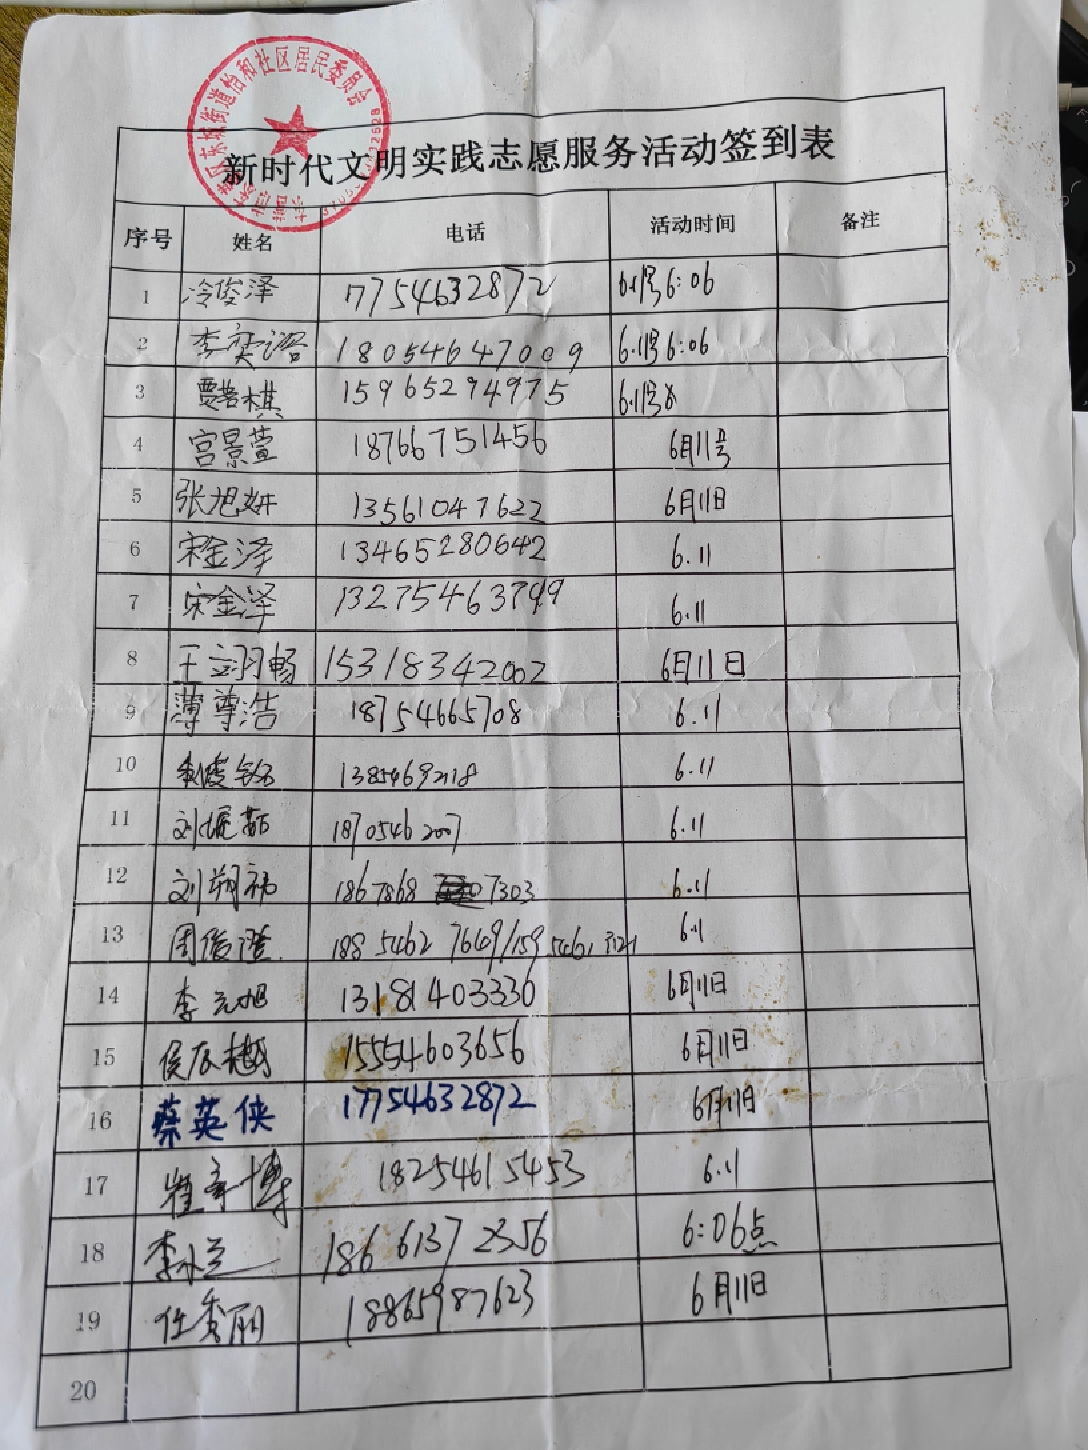 新时代文明实践志愿服务活动签到表
序号 姓名 电话 活动时间 备注
1 冷俊泽 17754632872 6.11号6:06
2 李奕诺 18054647009 6.11号6:06
3 贾若棋 15965294975 6.11号
4 宫景萱 18766751456 6月11号
5 张旭妍 13561047622 6月11日
6 宋金泽 13465280642 6.11
7 宋金泽 13275463799 6.11
8 王翊畅 15318342002 6月11日
9 薄尊浩 18754665708 6.11
10 13854692118 6.11
11 刘 18705462007 6.11
12 刘朔祎 1867868 07303 6.11
13 周俊澄 18854627649/159 6.1
14 李元旭 13181403330 6月11日
15 侯辰越 15554603656 6月11日
16 蔡英侠 17754632872 6月11日
17 博 18254615453 6.11
18 李小兰 18661372356 6:06点
19 任秀丽 18865987623 6月11日
20